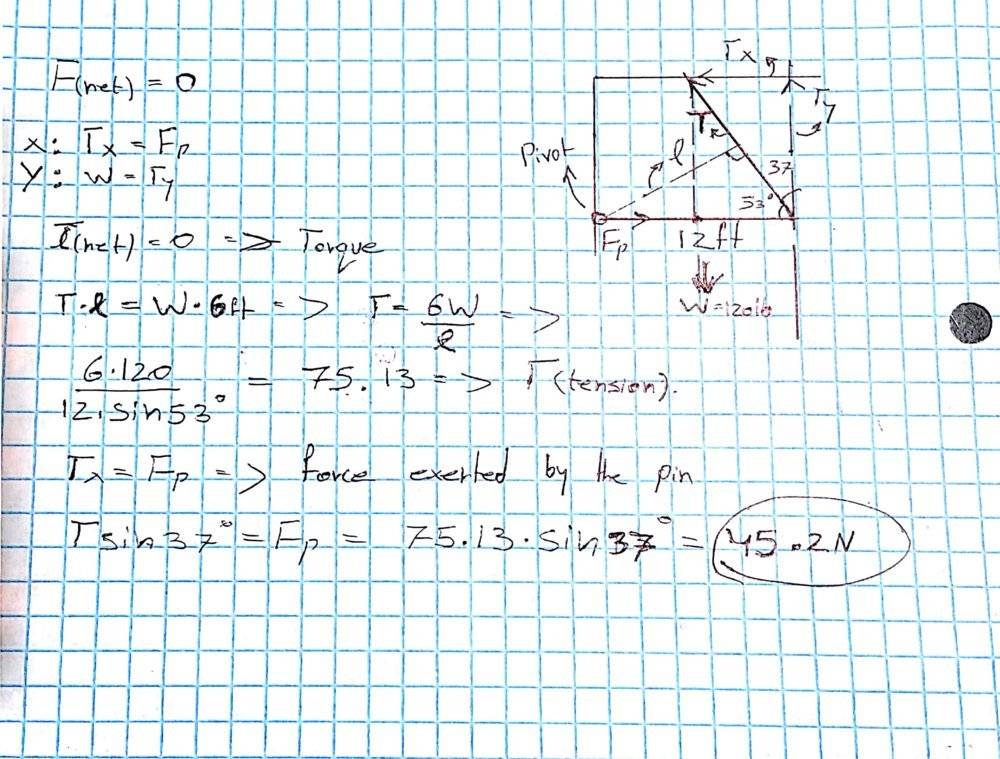 F(net) = 0
x: Tx = Fp
Y: W = Ty
τ(net) = 0 => Torque
T·l = W·6ft => T = 6W/l =>
6·120/12·sin53° = 75.13 => T(tension).
Tx = Fp => force exerted by the pin
Tsin37° = Fp = 75.13·sin37° = 45.2N
Tx
Ty
T
Pivot
l
37
53°
Fp
12ft
W=120lb